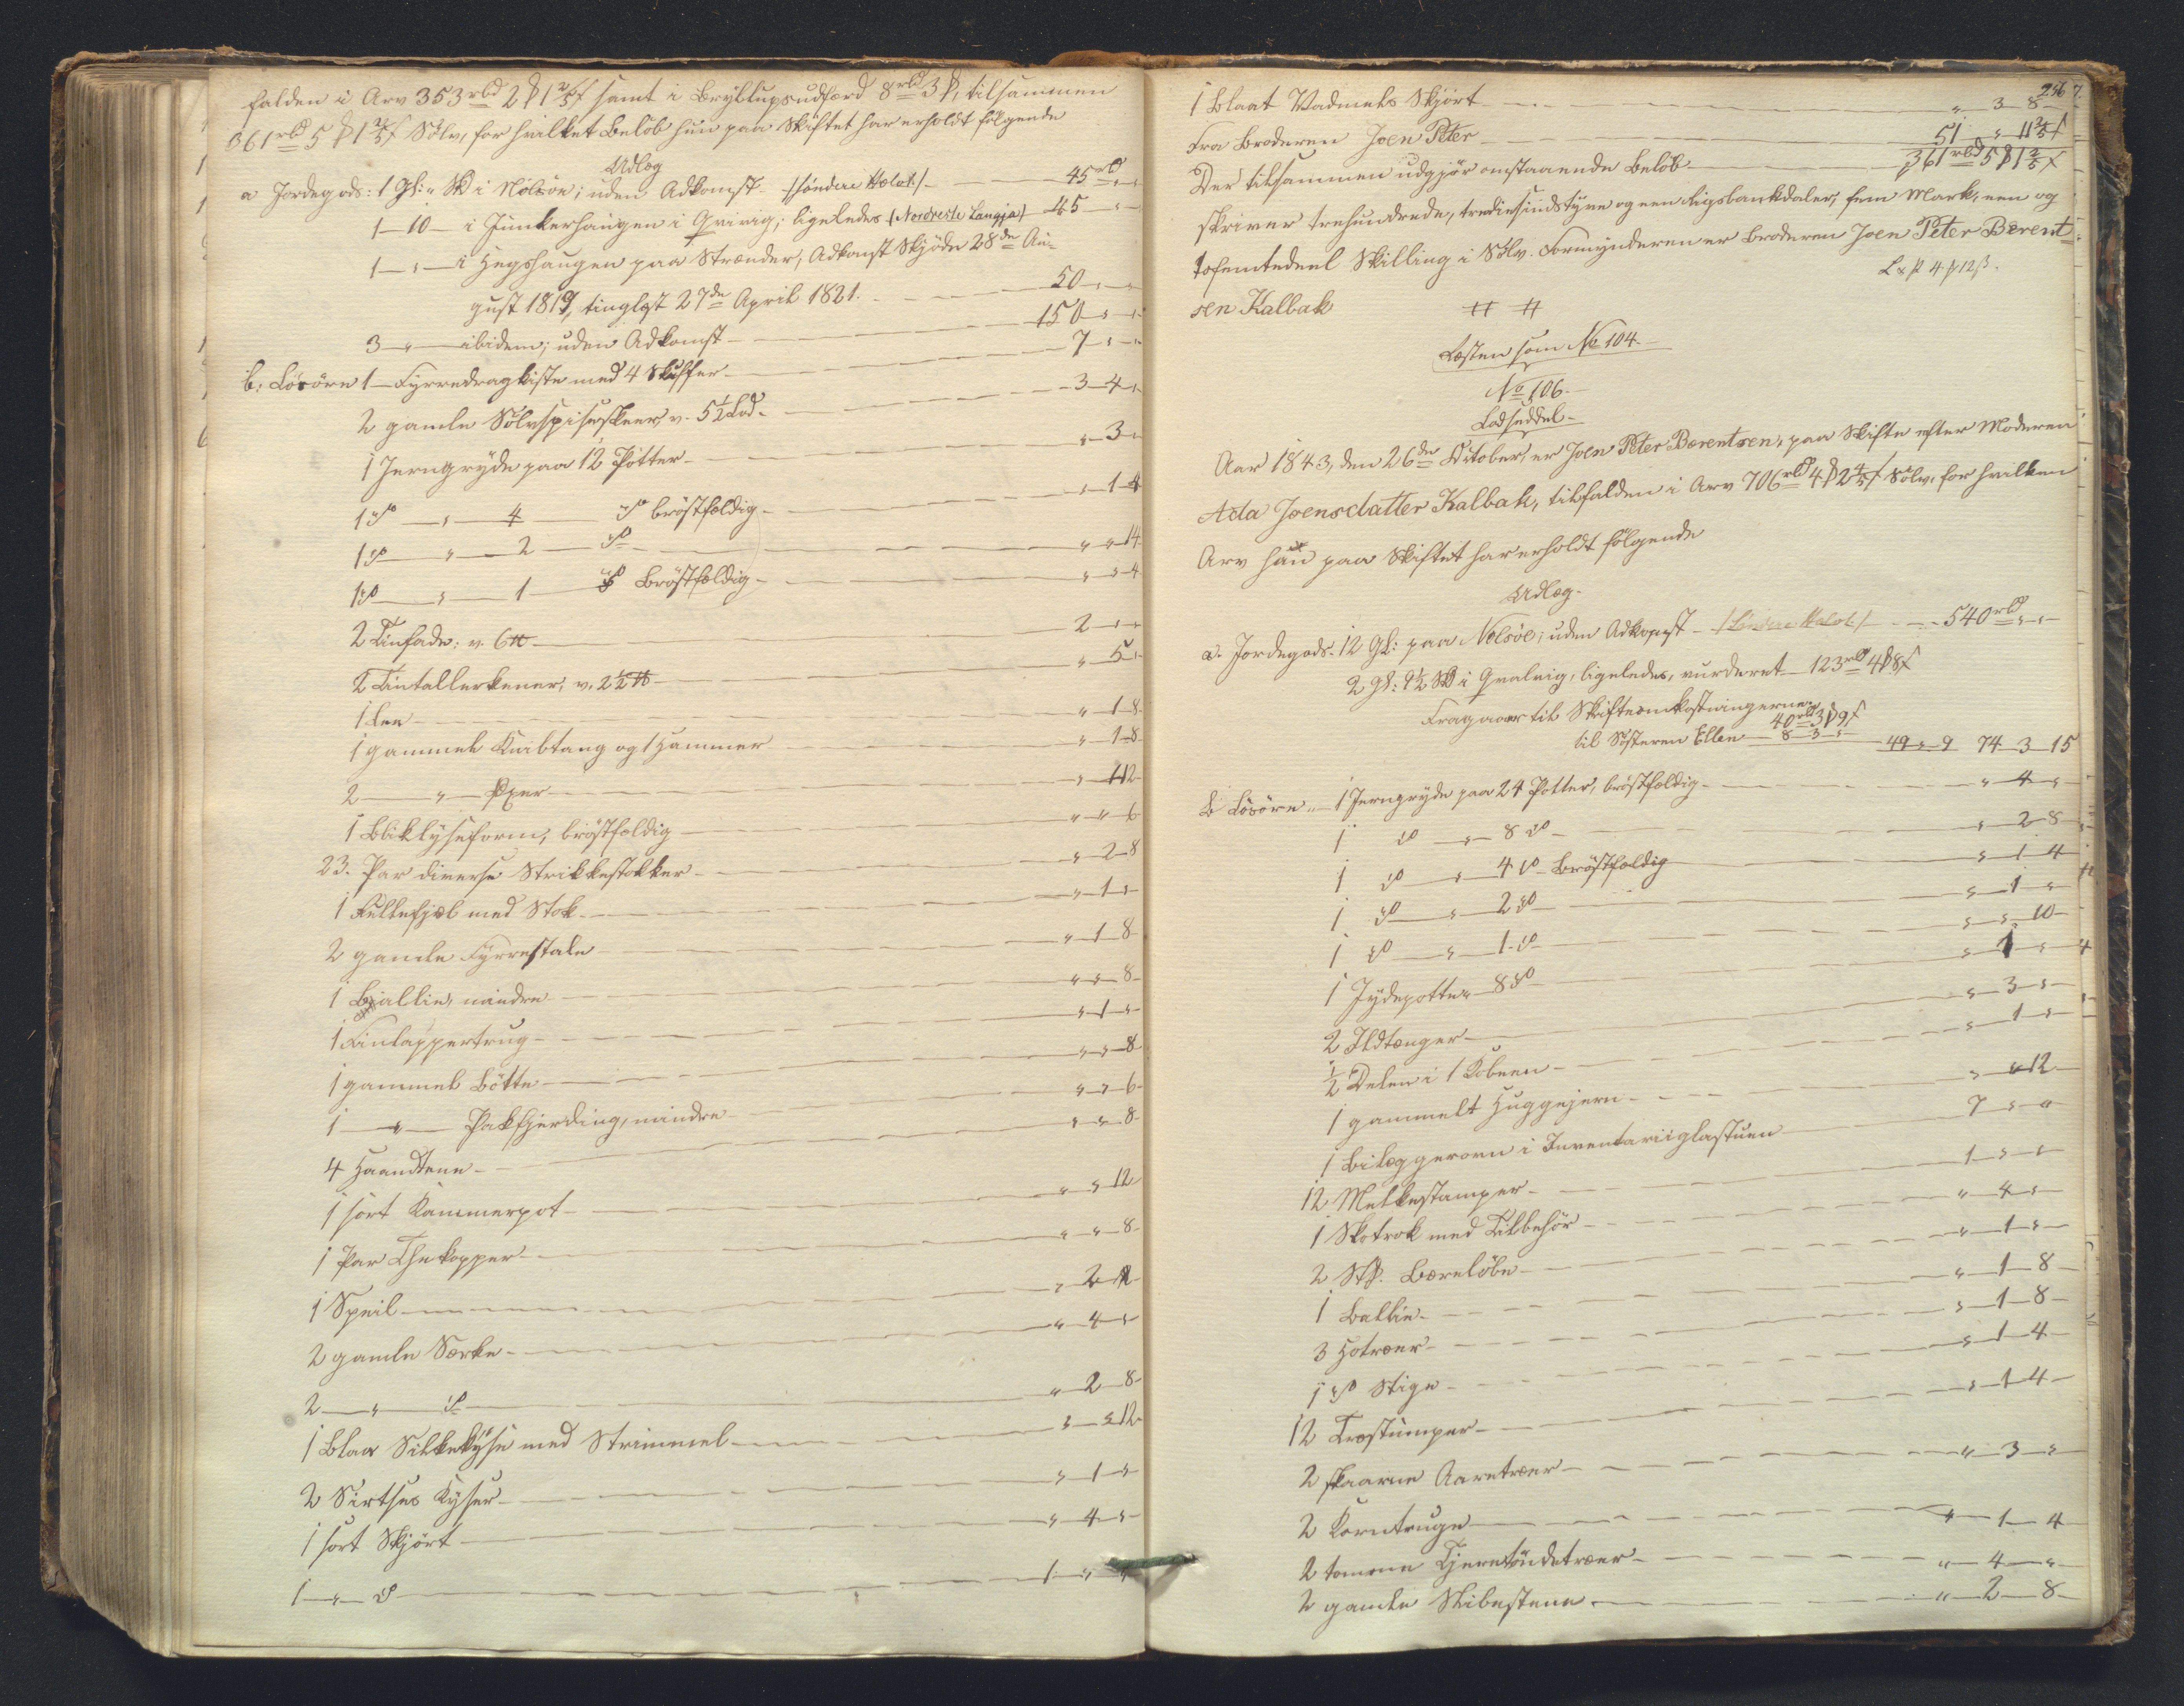 falden i Arv 353 rbd 2 ß 1 2/5 f samt i Bryllupsudfærd 8 rbd 3 ß, tilsammen
361 rbd 5 ß 1 2/5 f Sølv, for hvilket Beløb hun paa Skiftet har erholdt følgende
Udlæg
a Jordegods: 1 Gl: " Sk i Nolsöe; uden Adkomst (söndere Helvt) 45 rbd " "
1 — 10 — i Junkerhaugen i Qvivig; ligeledes (Nordreste Langja) 45 — " —
1 — " — i Hegshaugen paa Strænder, Adkomst Skjöde 28de Au-
gust 1819, tinglyst 27de April 1821. 50 — " —
3 — " — ibidem; uden Adkomst 150 — " —
b: Lösöre 1 Fyrredragkiste med 4 Skuffer 7 — " —
2 gamle Sölvspiseskeer, v. 5 1/2 Lod 3 — 4 —
1 Jerngryde paa 12 Potter " — 3 —
1 do — " — 4 do bröstfældig " — 1 — 4
1 do — " — 2 — do " — " — 14
1 do — " — 1 — do Bröstfældig " — " — 4
2 Tinfade: v. 6 ℔ 2 — " —
2 Tintallerkener, v. 2 1/2 ℔ " — 5 —
1 Lee " — 1 — 8
1 gammel Knibtang og 1 Hammer " — 1 — 8
2 — " — Øxer " — 1 — 12
1 Bliklyseform, bröstfældig " — " — 6
23. Par diverse Strikkestokker " — 2 — 8
1 Fullefjæl med Stok " — 1 — "
2 gamle Fyrrestole " — 1 — 8
1 Ballie, mindre " — " — 8
1 Finlappertrug " — 1 — "
1 gammel Bötte " — " — 8
1 — " — Pakfjerding, mindre " — " — 6
4 Haandtene " — " — 8
1 sort Kammerpot " — " — 12
1 Par Thekopper " — " — 8
1 Speil " — 2
2 gamle Særke " — 4 — "
2 — " — do " — 2 — 8
1 blaa Silkekyse med Strimmel " — " — 12
2 Sirtses Kyser " — 1 — "
1 sort Skjört " — 4 — "
1 — " — do 1 — " — "
1 blaat Vadmels Skjört " 3 8
Fra Broderen Joen Peter 51 " 11 2/5 f
Der tilsammen udgjör omstaaende Belöb 361 rbd 5 ß 1 2/5 f
skriver trehundrede, tredesindstyve og een Rigsbankdaler, fem Mark, een og
tofemtedeel Skilling i Sölv. Formynderen er Broderen Joen Peter Berent-
sen Kalbak
Læsten som No 104
No 106
Lodseddel
Aar 1843, den 26de Octobr, er Joen Peter Berentsen, paa Skifte efter Moderen
Ada Joensdatter Kalbak, tilfalden i Arv 706 rbd 4 ß 2 4/5 f Sölv, for hvilken
Arv han paa Skiftet har erholdt følgende
Udlæg
a. Jordegods. 12 Gl: paa Nolsöe; uden Adkomst (Söndere Helvt) 540 rbd " "
2 Gl: 9 1/2 Sk i Qvalvig, ligeledes, vurderet 123 rbd 4 ß 8 f
Fragaaer til Skifteomkostningerne 40 rbd 3 ß 9 f
til Søsteren Ellen 8 — 3 — " 49 — " — 9 74 — 3 — 15
b Lösöre 1 Jerngryde paa 24 Potter, bröstfældig " — 4 — "
1 do — " — 8 do " — 2 — 8
1 do — " — 4 do Bröstfældig " — 1 — 4
1 do — " — 2 do " — 1 — "
1 do — " — 1 do " — " — 10
1 Jydepotte — 8 do " — 1 — "
2 Ildtænger " — 3 — "
1/2 Delen i 1 Kobeen " — 1 — "
1 gammelt Huggejern " — " 12
1 Bilæggerovn i Inventariiglastuen 7 — " — "
12 Melkestamper 1 — " — "
1 Skotrok med Tilbehör " — 4 — "
2 Stk. Bæreløbe " — 1 — "
1 Ballie " — 1 — 8
3 Hotræer " — 1 — 8
1 do Stige " — 1 — 4
12 Træstumper " — 1 — 4
2 skaarne Aaretræer " — 3 — "
2 Korntruge " — 1 — 4
2 tomme Tjæretöndetræer " — 4 — "
2 gamle Slibestene " — 2 — 8